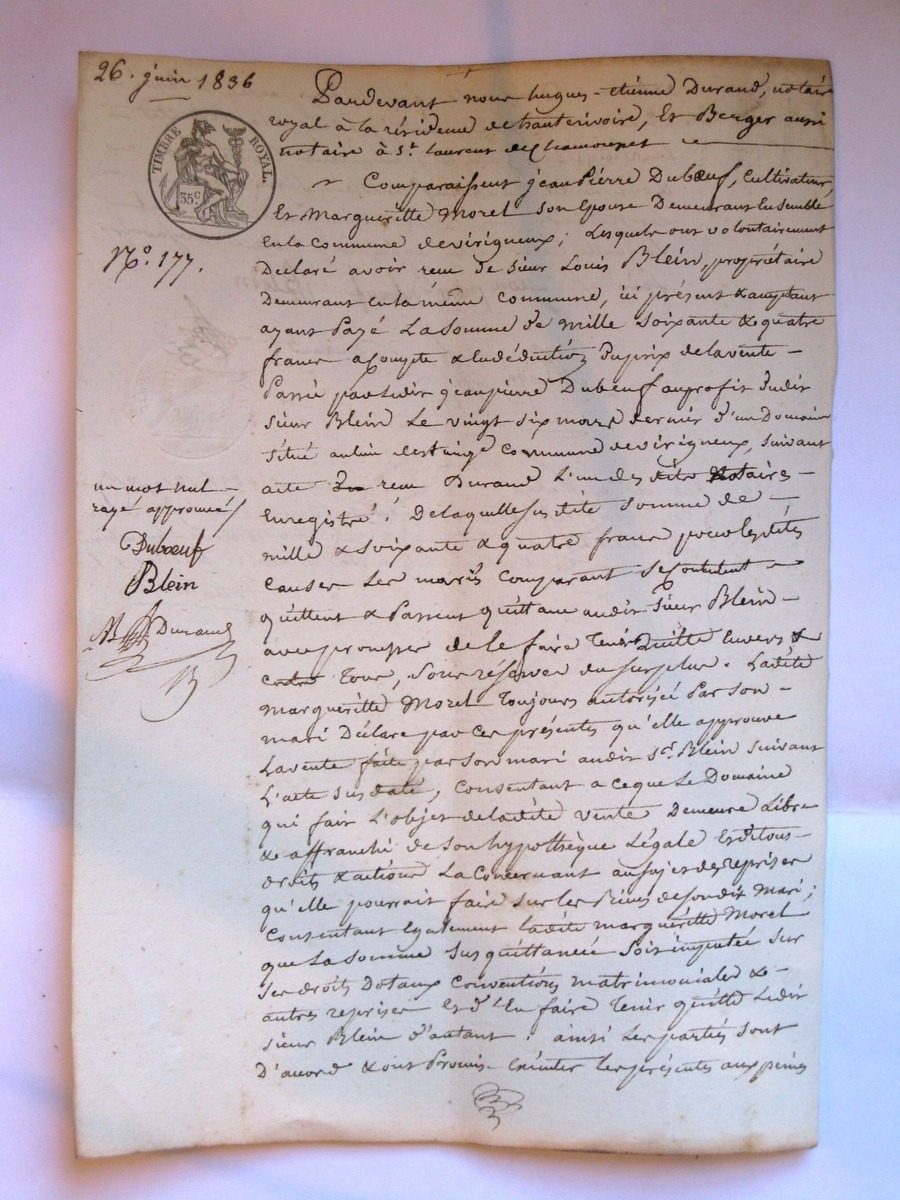 26. juin 1836
TIMBRE ROYAL.
35c
N.° 177.
un mot nul
rayé approuvé
Dubœuf
Blein
Durand
Pardevant nous hugues-étienne Durand, notaire
royal à la résidence de hauterivoire, Et Berger aussi
notaire à St. Laurent de Chamousset
Comparaissent jean Pierre Dubœuf, Cultivateur,
Et Margueritte Morel son Epouse Demeurant Ensemble
En la Commune de virigneux; Lesquels ont volontairement
Declaré avoir reçu de sieur Louis Blein, propriétaire
Demeurant en la même Commune, ici présent & acceptant
ayant Payé La somme de mille soixante & quatre
francs acompte & En déduction du prix de la vente
Passée par Ledit jean pierre Dubœuf au profit dudit
Sieur Blein Le vingt six mars dernier d'un Domaine
Situé au lieu de Commune de virigneux, suivant
acte reçu Durand L'un des dits Notaires
Enregistré. De laquelle susdite somme de
mille & soixante & quatre francs pour les dites
causes Les mariés comparant se contentent
quittent & Passent quittance audit Sieur Blein
avec promesse de le faire tenir quitte Envers &
contre Tous, sous réserve du surplus. Ladite
margueritte Morel Toujours autorisée Par son
mari Déclare par ces présentes qu'elle approuve
La vente faite par son mari audit Sr. Blein suivant
L'acte sus daté, Consentant a ce que Le Domaine
qui fait L'objet de ladite vente Demeure Libre
& affranchi de son hypothèque Légale Et de tous
droits & actions La Concernant au sujet des reprises
qu'elle pourrait faire sur les Biens de son dit Mari;
Consentant Egalement Ladite margueritte Morel
que La somme sus quittancée soit imputée sur
ses droits Dotaux Conventions matrimoniales &
autres reprises Et d'En faire Tenir quitte Ledit
sieur Blein d'autant. ainsi Les parties sont
D'accord & ont Promis Exécuter Les présentes aux peines